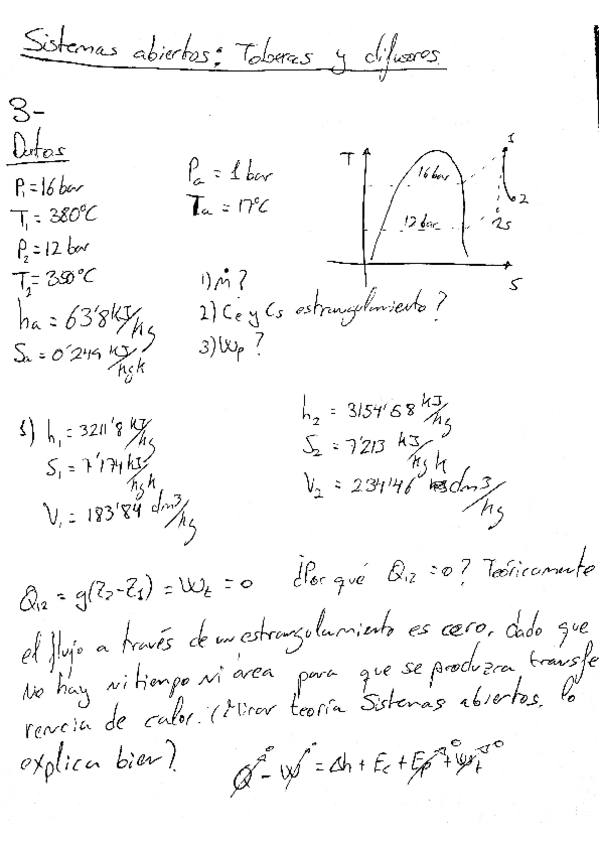 Sistemas abiertos: Toberas y difusores.
3-
Datos
P₁=16 bar
T₁=380°C
P₂=12 bar
T₂=350°C
ha=63'8 kJ/kg
Sa=0'249 kJ/kgK
Pa=1 bar
Ta=17°C
1) ṁ?
2) Ce y Cs estrangulamiento?
3) Wp?
T
16 bar
12 bar
1
2
2s
S
1) h₁=3211'8 kJ/kg
S₁=7'174 kJ/kgK
V₁=183'84 dm3/kg
h₂=3154'68 kJ/kg
S₂=7'213 kJ/kgK
V₂=234'46 dm3/kg
Q₁₂=g(Z₂-Z₁)=Wt=0 ¿Por qué Q₁₂=0? Teóricamente
el flujo a través de un estrangulamiento es cero, dado que
No hay ni tiempo ni área para que se produzca transfe
rencia de calor. (Mirar teoría Sistemas abiertos, lo
explica bien).
Q-W=Δh+Ec+Ep+Wt